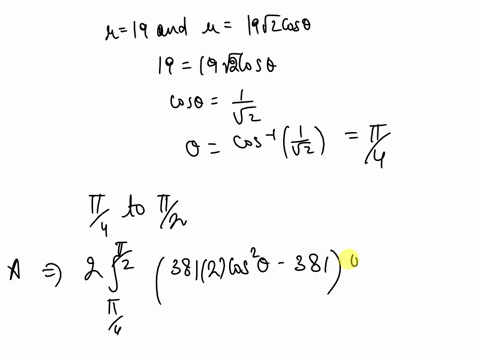 r = 19 and r = 19√2 cosθ
19 = 19√2 cosθ
cosθ = 1/√2
θ = cos⁻¹(1/√2) = π/4
π/4 to π/2
A ⇒ 2 ∫_{π/4}^{π/2} (381(2)cos²θ - 381)